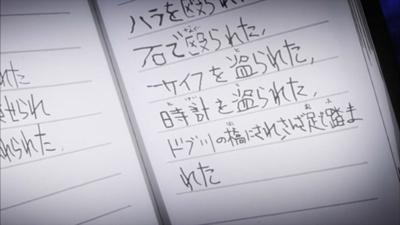 れた
せられ
られた
ハラを殴られた
石で殴られた、
サイフを盗られた、
時計を盗られた、
ドブ川の橋にされ、足で踏ま
れた